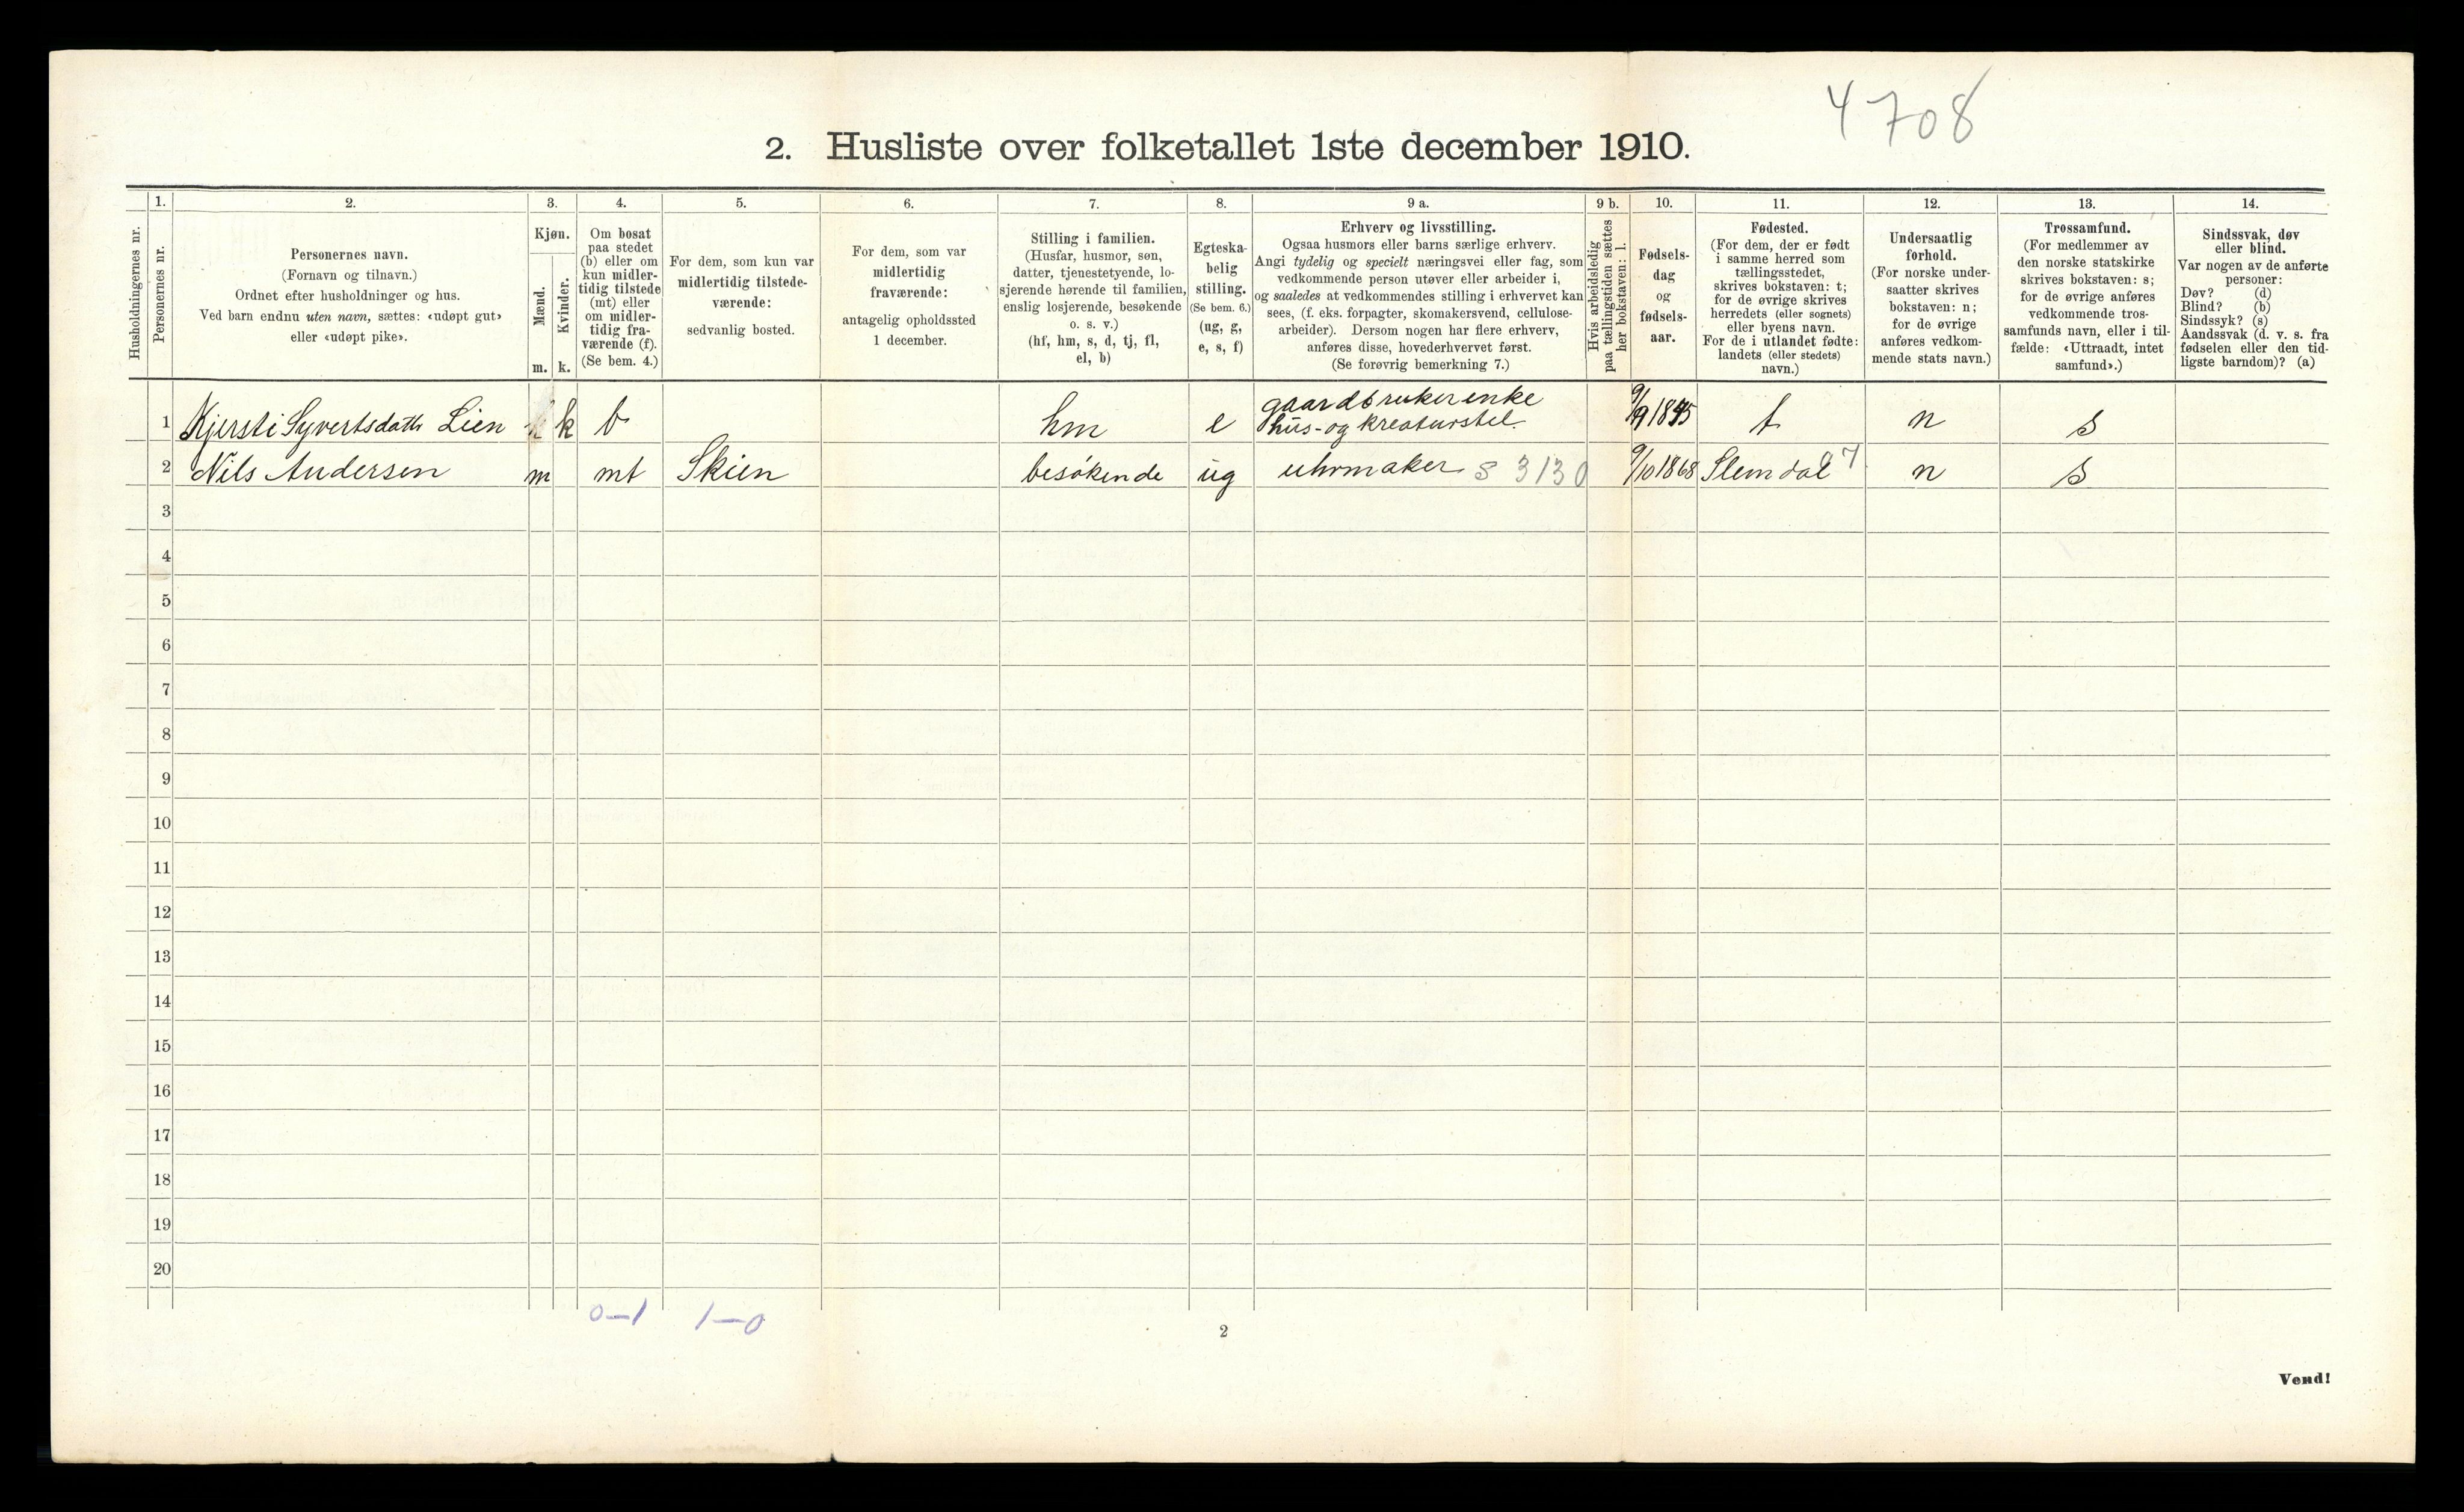 4708
2. Husliste over folketallet 1ste december 1910.
Husholdningernes nr.
1.
Personernes nr.
2.
Personernes navn.
(Fornavn og tilnavn.)
Ordnet efter husholdninger og hus.
Ved barn endnu uten navn, sættes: «udøpt gut»
eller «udøpt pike».
3.
Kjøn.
Mænd.
m.
Kvinder.
k.
4.
Om bosat
paa stedet
(b) eller om
kun midler-
tidig tilstede
(mt) eller
om midler-
tidig fra-
værende (f).
(Se bem. 4.)
5.
For dem, som kun var
midlertidig tilstede-
værende:
sedvanlig bosted.
6.
For dem, som var
midlertidig
fraværende:
antagelig opholdssted
1 december.
7.
Stilling i familien.
(Husfar, husmor, søn,
datter, tjenestetyende, lo-
sjerende hørende til familien,
enslig losjerende, besøkende
o. s. v.)
(hf, hm, s, d, tj, fl,
el, b)
8.
Egteska-
belig
stilling.
(Se bem. 6.)
(ug, g,
e, s, f)
9 a.
Erhverv og livsstilling.
Ogsaa husmors eller barns særlige erhverv.
Angi tydelig og specielt næringsvei eller fag, som
vedkommende person utøver eller arbeider i,
og saaledes at vedkommendes stilling i erhvervet kan
sees, (f. eks. forpagter, skomakersvend, cellulose-
arbeider). Dersom nogen har flere erhverv,
anføres disse, hovederhvervet først.
(Se forøvrig bemerkning 7.)
9 b.
Hvis arbeidsledig
paa tællingstiden sættes
her bokstaven: l.
10.
Fødsels-
dag
og
fødsels-
aar.
11.
Fødested.
(For dem, der er født
i samme herred som
tællingsstedet,
skrives bokstaven: t;
for de øvrige skrives
herredets (eller sognets)
eller byens navn.
For de i utlandet fødte:
landets (eller stedets)
navn.)
12.
Undersaatlig
forhold.
(For norske under-
saatter skrives
bokstaven: n;
for de øvrige
anføres vedkom-
mende stats navn.)
13.
Trossamfund.
(For medlemmer av
den norske statskirke
skrives bokstaven: s;
for de øvrige anføres
vedkommende tros-
samfunds navn, eller i til-
fælde: «Uttraadt, intet
samfund».)
14.
Sindssvak, døv
eller blind.
Var nogen av de anførte
personer:
Døv? (d)
Blind? (b)
Sindssyk? (s)
Aandssvak (d. v. s. fra
fødselen eller den tid-
ligste barndom)? (a)
1 Kjersti Syvertsdattr Lien k b hm e gaardbrukerenke t n s
hus- og kreaturstel
2 Nils Andersen m mt Skien besøkende ug uhrmaker s 3130 9/10 1868 Slemdal 7 n s
3
4
5
6
7
8
9
10
11
12
13
14
15
16
17
18
19
20
0-1 1-0
2
Vend!